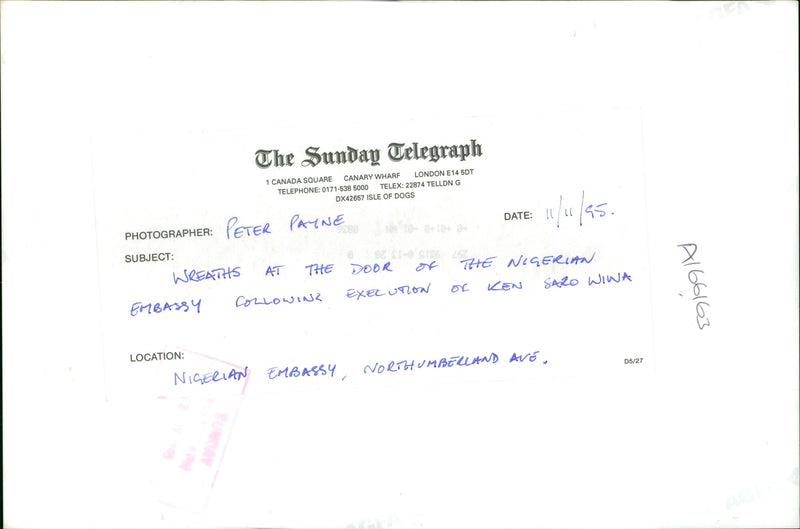 The Sunday Telegraph
1 CANADA SQUARE CANARY WHARF LONDON E14 5DT
TELEPHONE: 0171-538 5000 TELEX: 22874 TELLDN G
DX42657 ISLE OF DOGS
PHOTOGRAPHER: PETER PAYNE
DATE: 11/11/95.
SUBJECT:
WREATHS AT THE DOOR OF THE NIGERIAN
EMBASSY FOLLOWING EXECUTION OF KEN SARO WIWA
LOCATION:
NIGERIAN EMBASSY, NORTHUMBERLAND AVE.
D5/27
A166163
SUNDAY
AGFA